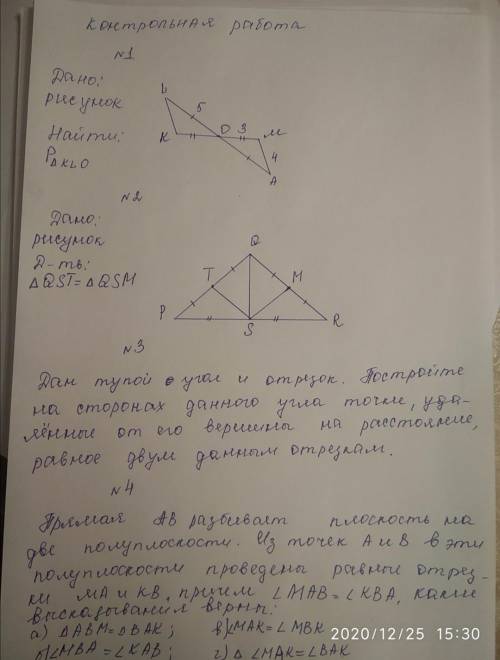 Контрольная работа
№1
Дано:
рисунок
Найти:
P△KLO
L
5
K
O
3
M
4
A
№2
Дано:
рисунок
Д-ть:
△QST=△QSM
Q
T
M
P
S
R
№3
Дан тупой угол и отрезок. Постройте
на сторонах данного угла точки, уда-
лённые от его вершины на расстояние,
равное двум данным отрезкам.
№4
Прямая AB разбивает плоскость на
две полуплоскости. Из точек A и B в эти
полуплоскости проведены равные отрез-
ки MA и KB, причем ∠MAB=∠KBA, какие
высказывания верны:
а) △ABM=△BAK; в)∠MAK=∠MBK
б)∠MBA=∠KAB; г)△∠MAK=∠BAK
2020/12/25 15:30